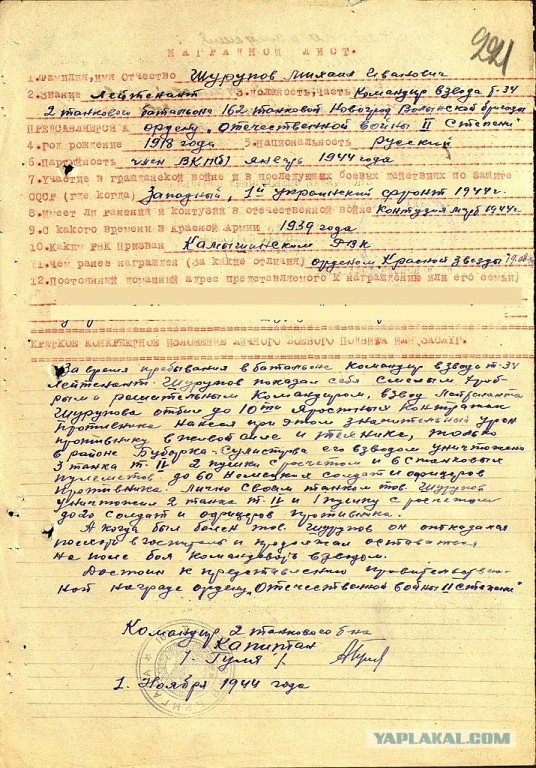 224
НАГРАДНОЙ ЛИСТ.
1.Фамилия,имя Отчество Шурупов Михаил Иванович
2.Звание Лейтенант 3.Должность,часть Командир взвода Т-34
2 танкового батальона 162 танковой Новоград Волынской бригады
Представляется к ордену „Отечественной войны II степени"
4.Год рождение 1918 года 5.Национальность Русский
6.Партийность член ВКП(б) январь 1944 года
7.Участие в гражданской войне и в последующих боевых действиях по защите
СССР (где когда) Западный, 1й украинский фронт 1944г.
8.Имеет ли ранения и контузии в отечественной войне контузия 1944г.
9.С какого времени в Красной Армии 1939 года
10.Каким РВК Призван Камышинским РВК
11.Чем ранее награжден (за какие отличия) орденом „Красной звезды"
12.Постоянный домашний адрес представляемого к награждению или его семьи
КРАТКОЕ КОНКРЕТНОЕ ИЗЛОЖЕНИЕ ЛИЧНОГО БОЕВОГО ПОДВИГА ИЛИ ЗАСЛУГ.
За время пребывания в батальоне Командир взвода т-34
Лейтенант Шурупов показал себя смелым храб-
рым и решительным Командиром, взвод Лейтенанта
Шурупова отбил до 10ти яростных контратак
противника нанеся при этом значительный урон
противнику в живой силе и технике, только
в районе его взводом уничтожено
3 танка Т-IV 2 пушки с расчетом и 6 станковых
пулеметов до 60 Немецких солдат и офицеров
противника. Лично своим танком тов. Шурупов
уничтожил 2 танка Т-IV и 1 пушку с расчетом
до 20 солдат и офицеров противника.
А когда был болен тов. Шурупов он отказался
пойти в госпиталь и продолжал оставаться
на поле боя командовать взводом.
Достоин к представлению правительствен-
ной награде ордену „Отечественной войны II степени"
Командир 2 танкового б-на
Капитан
/ Гуля /
1. Ноября 1944 года
БРИГАДА
YAPLAKAL.COM